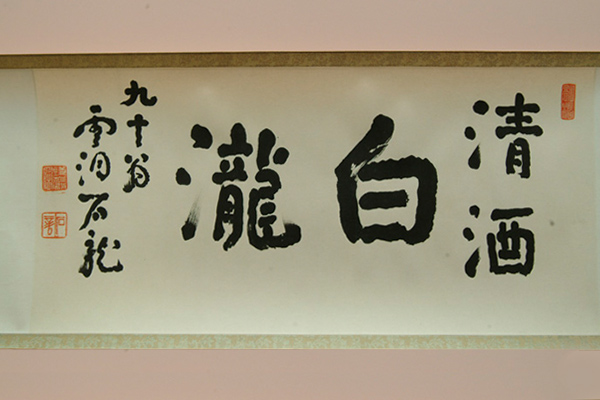 清酒
白瀧
九十翁
雪洞石龍